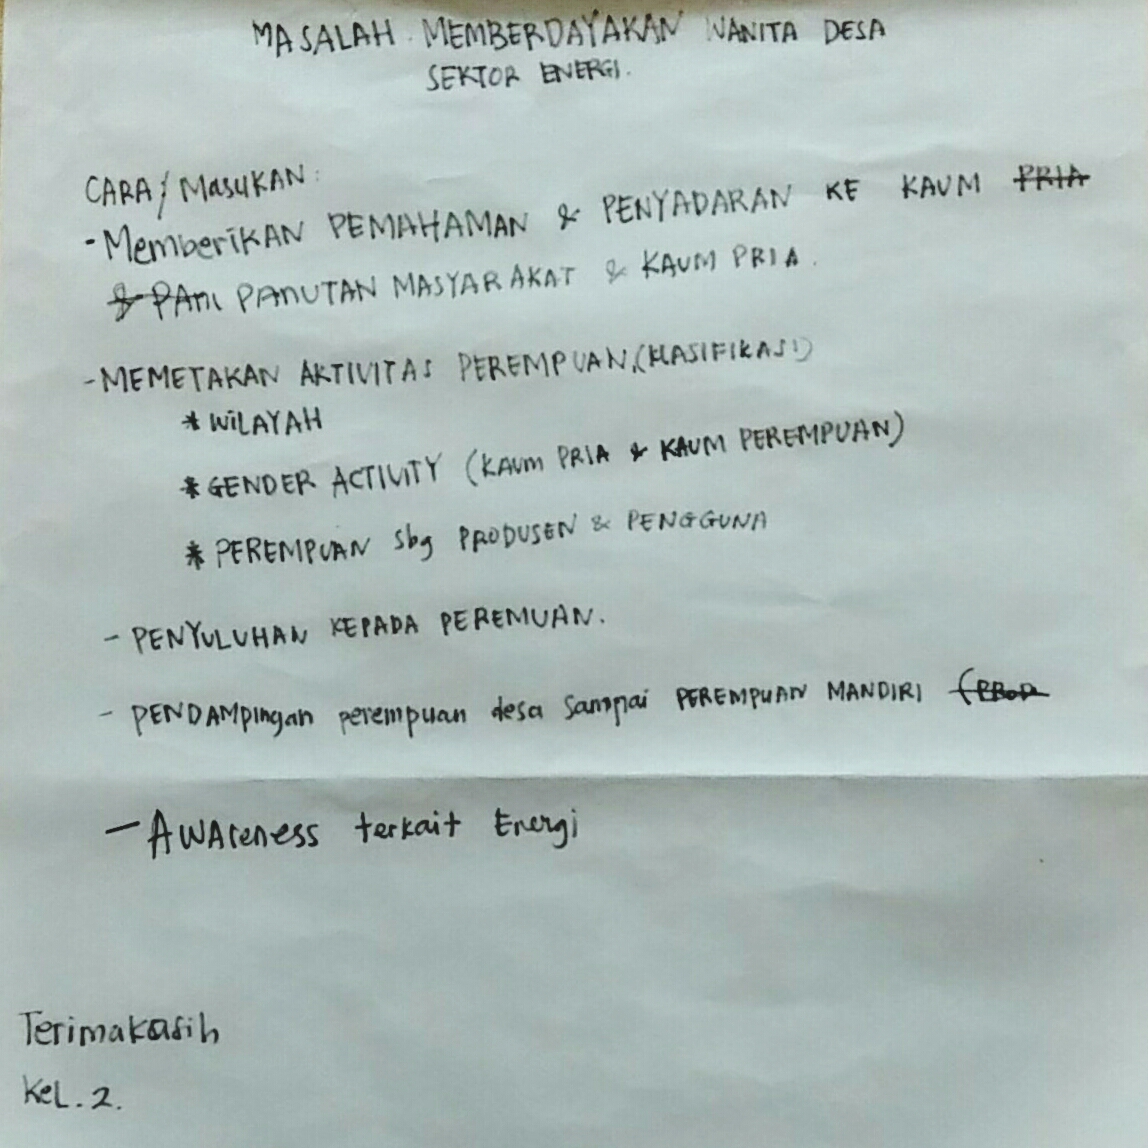 MASALAH MEMBERDAYAKAN WANITA DESA
SEKTOR ENERGI.
CARA / MASUKAN:
- MemberiKAN PEMAHAMAN & PENYADARAN KE KAUM PRIA
& PAni PANUTAN MASYARAKAT & KAUM PRIA.
- MEMETAKAN AKTIVITAS PEREMPUAN. (KLASIFIKASI)
* WILAYAH
* GENDER ACTIVITY (KAUM PRIA & KAUM PEREMPUAN)
* PEREMPUAN sbg PRODUSEN & PENGGUNA
- PENYULUHAN KEPADA PEREMUAN.
- PENDAMPIngan perempuan desa sampai PEREMPUAN MANDIRI (PROD
- AWAreness terkait Energi
Terimakasih
KeL. 2.